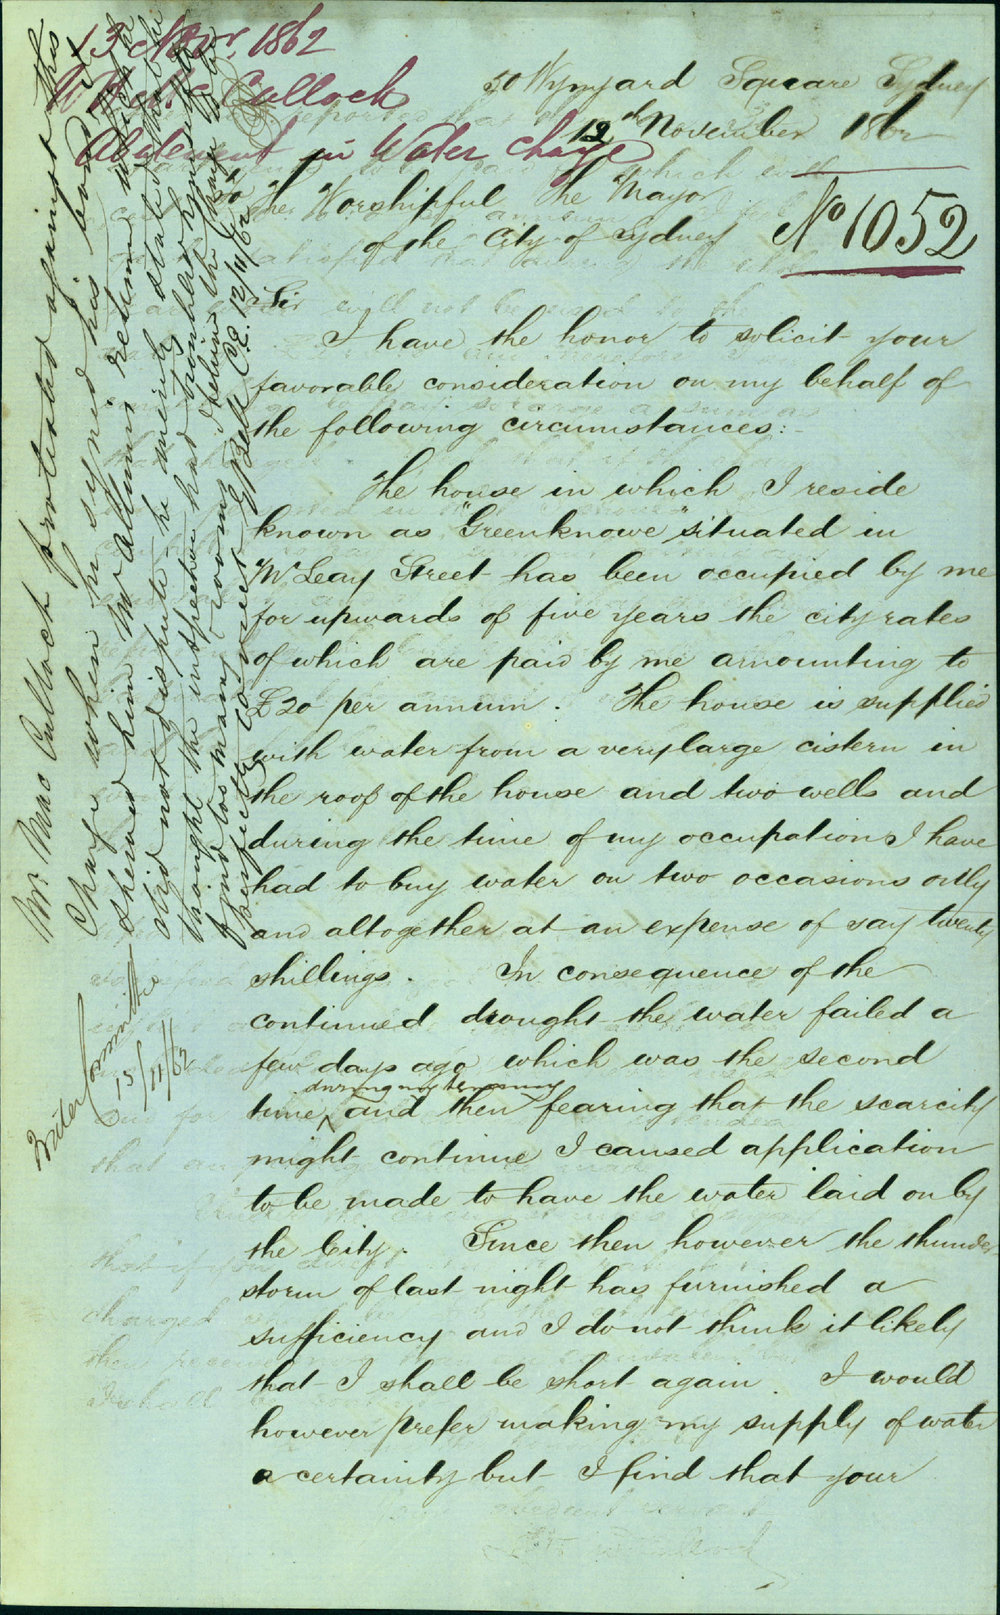 13 Novr. 1862
Mc Cullock
Abatement in Water Charge
50 Wynyard Square Sydney
12th November 1862
No 1052
To The Worshipful The Mayor
of the City of Sydney
Sir
I have the honor to solicit your
favorable consideration on my behalf of
the following circumstances:-
The house in which I reside
known as "Greenknowe" situated in
McLeay Street has been occupied by me
for upwards of five years the city rates
of which are paid by me amounting to
£20 per annum. The house is supplied
with water from a very large cistern in
the roof of the house and two wells and
during the time of my occupation I have
had to buy water on two occasions only
and altogether at an expense of say twenty
shillings. In consequence of the
continued drought the water failed a
few days ago which was the second
time during my tenancy and then fearing that the scarcity
might continue I caused application
to be made to have the water laid on by
the City. Since then however the thunder
storm of last night has furnished a
sufficiency and I do not think it likely
that I shall be short again. I would
however prefer making my supply of water
a certainty but I find that your
Mr. Mac Cullock protested against this
Charge when he signed his bond
shewed him Mr return
did not dispute he merely stated that he
thought the inspector had
found too many rooms I believe the
perfectly correct E Bell C.E. 12/11/62
Water Committee
15/11/62